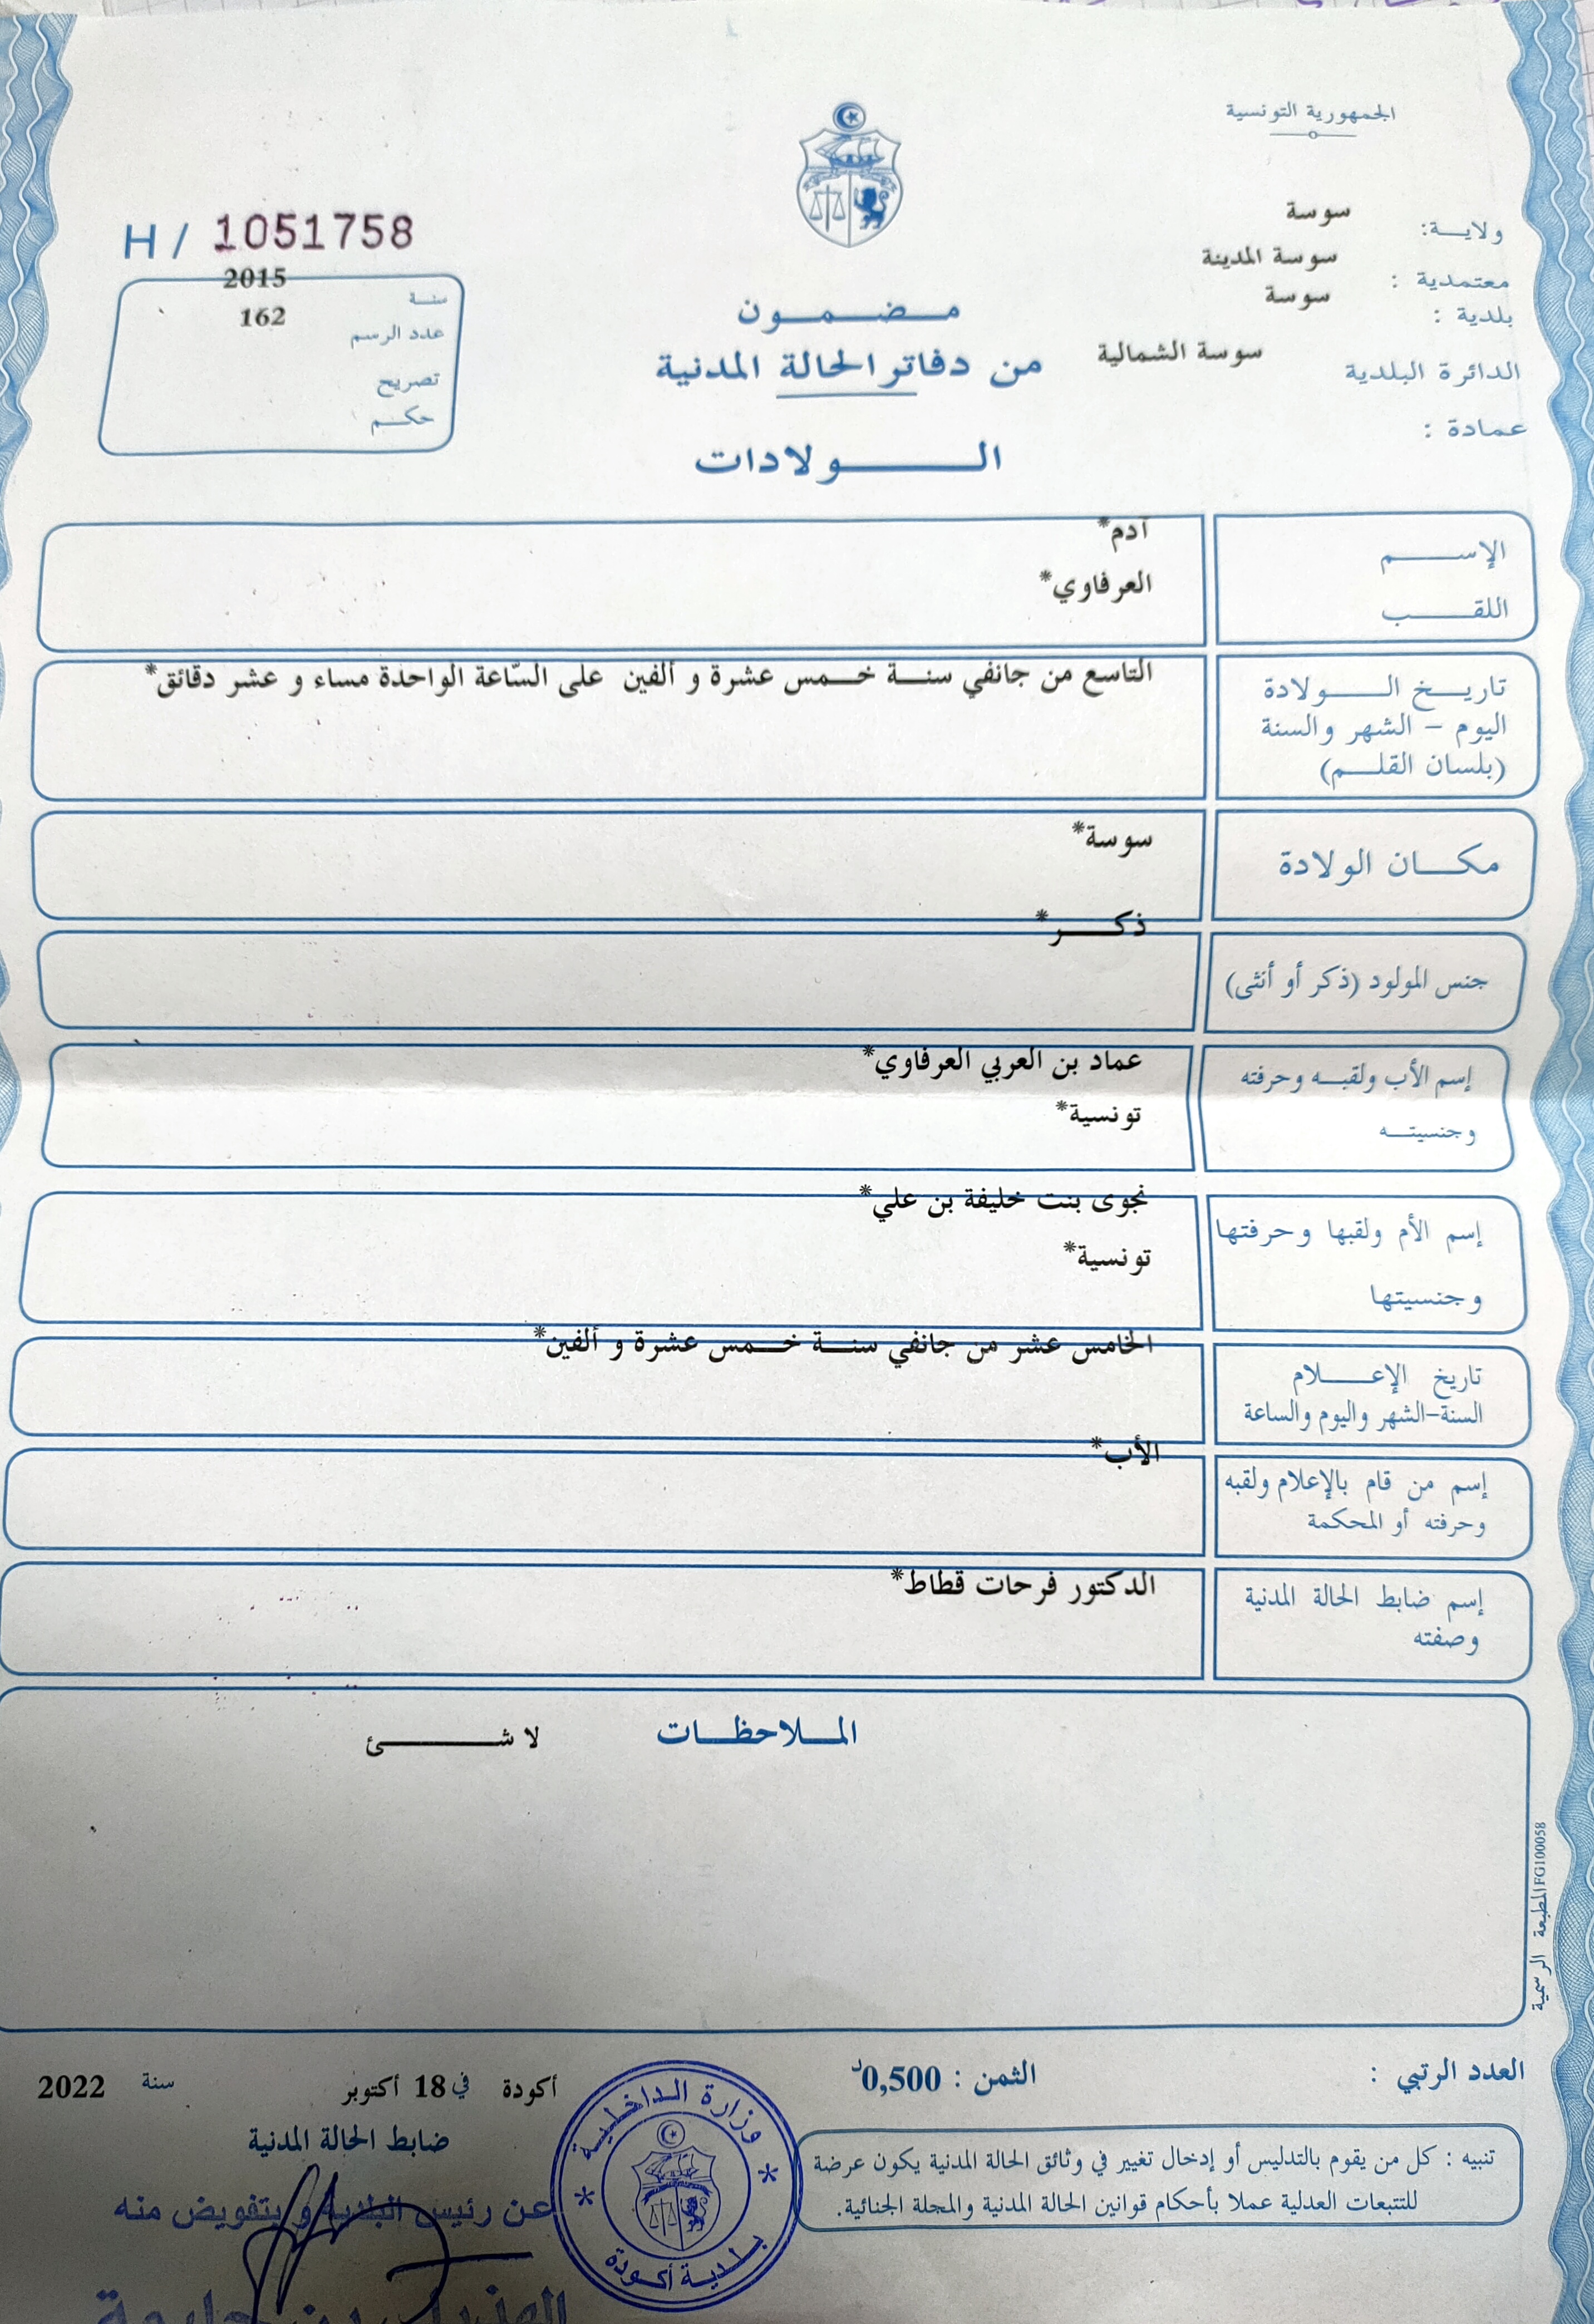 الجمهورية التونسية
ولايــة: سوسة
معتمدية : سوسة المدينة
بلدية : سوسة
الدائرة البلدية سوسة الشمالية
عمادة :
مـضـمـون
من دفاتر الحالة المدنية
الـولادات
H / 1051758
سنة 2015
عدد الرسم 162
تصريح
حكـم
الإســم آدم*
اللقــب العرفاوي*
تاريـخ الـولادة
اليوم – الشهر والسنة
(بلسان القلـم)
التاسع من جانفي سنـة خـمس عشرة و ألفين على السّاعة الواحدة مساء و عشر دقائق*
مكـان الولادة سوسة*
جنس المولود (ذكر أو أنثى) ذكـر*
إسم الأب ولقبـه وحرفته عماد بن العربي العرفاوي*
وجنسيتـه تونسية*
إسم الأم ولقبها وحرفتها نجوى بنت خليفة بن علي*
وجنسيتها تونسية*
تاريخ الإعـلام
السنة–الشهر واليوم والساعة
الخامس عشر من جانفي سنـة خـمس عشرة و ألفين*
إسم من قام بالإعلام ولقبه
وحرفته أو المحكمة
الأب*
إسم ضابط الحالة المدنية
وصفته
الدكتور فرحات قطاط*
المـلاحظـات لا شـئ
المطبعة الرسمية FG100058
العدد الرتبي :
الثمن : 0,500د
أكودة في 18 أكتوبر سنة 2022
ضابط الحالة المدنية
عن رئيس البلدية و بتفويض منه
وزارة الداخلية
بلدية أكودة
تنبيه : كل من يقوم بالتدليس أو إدخال تغيير في وثائق الحالة المدنية يكون عرضة
للتتبعات العدلية عملا بأحكام قوانين الحالة المدنية والمجلة الجنائية.